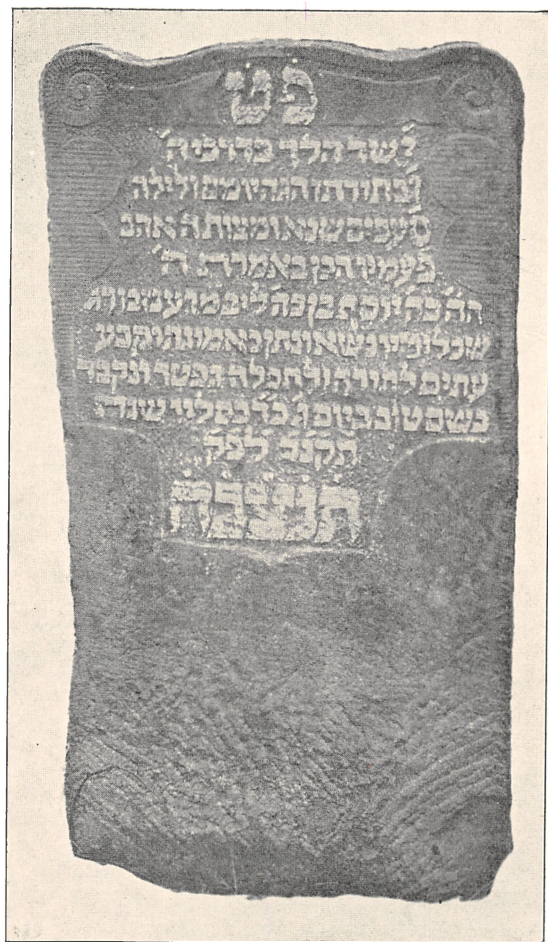 פ ט
ישר הלך בדרכי ה'
ובתורתו הגה יומם ולילה
סעפים שנא ומצות ה' אהב
פעמיו הכן באמרת ה'
ה"ה כה' יוסף בן כה' ליב
שכל ימיו נשא ונתן באמונה וקבע
עתים לתורה ולתפלה נפטר ונקבר
בשם טוב ביום ג' כ"ד כסליו שנה
תקנב לפק
תנצבה